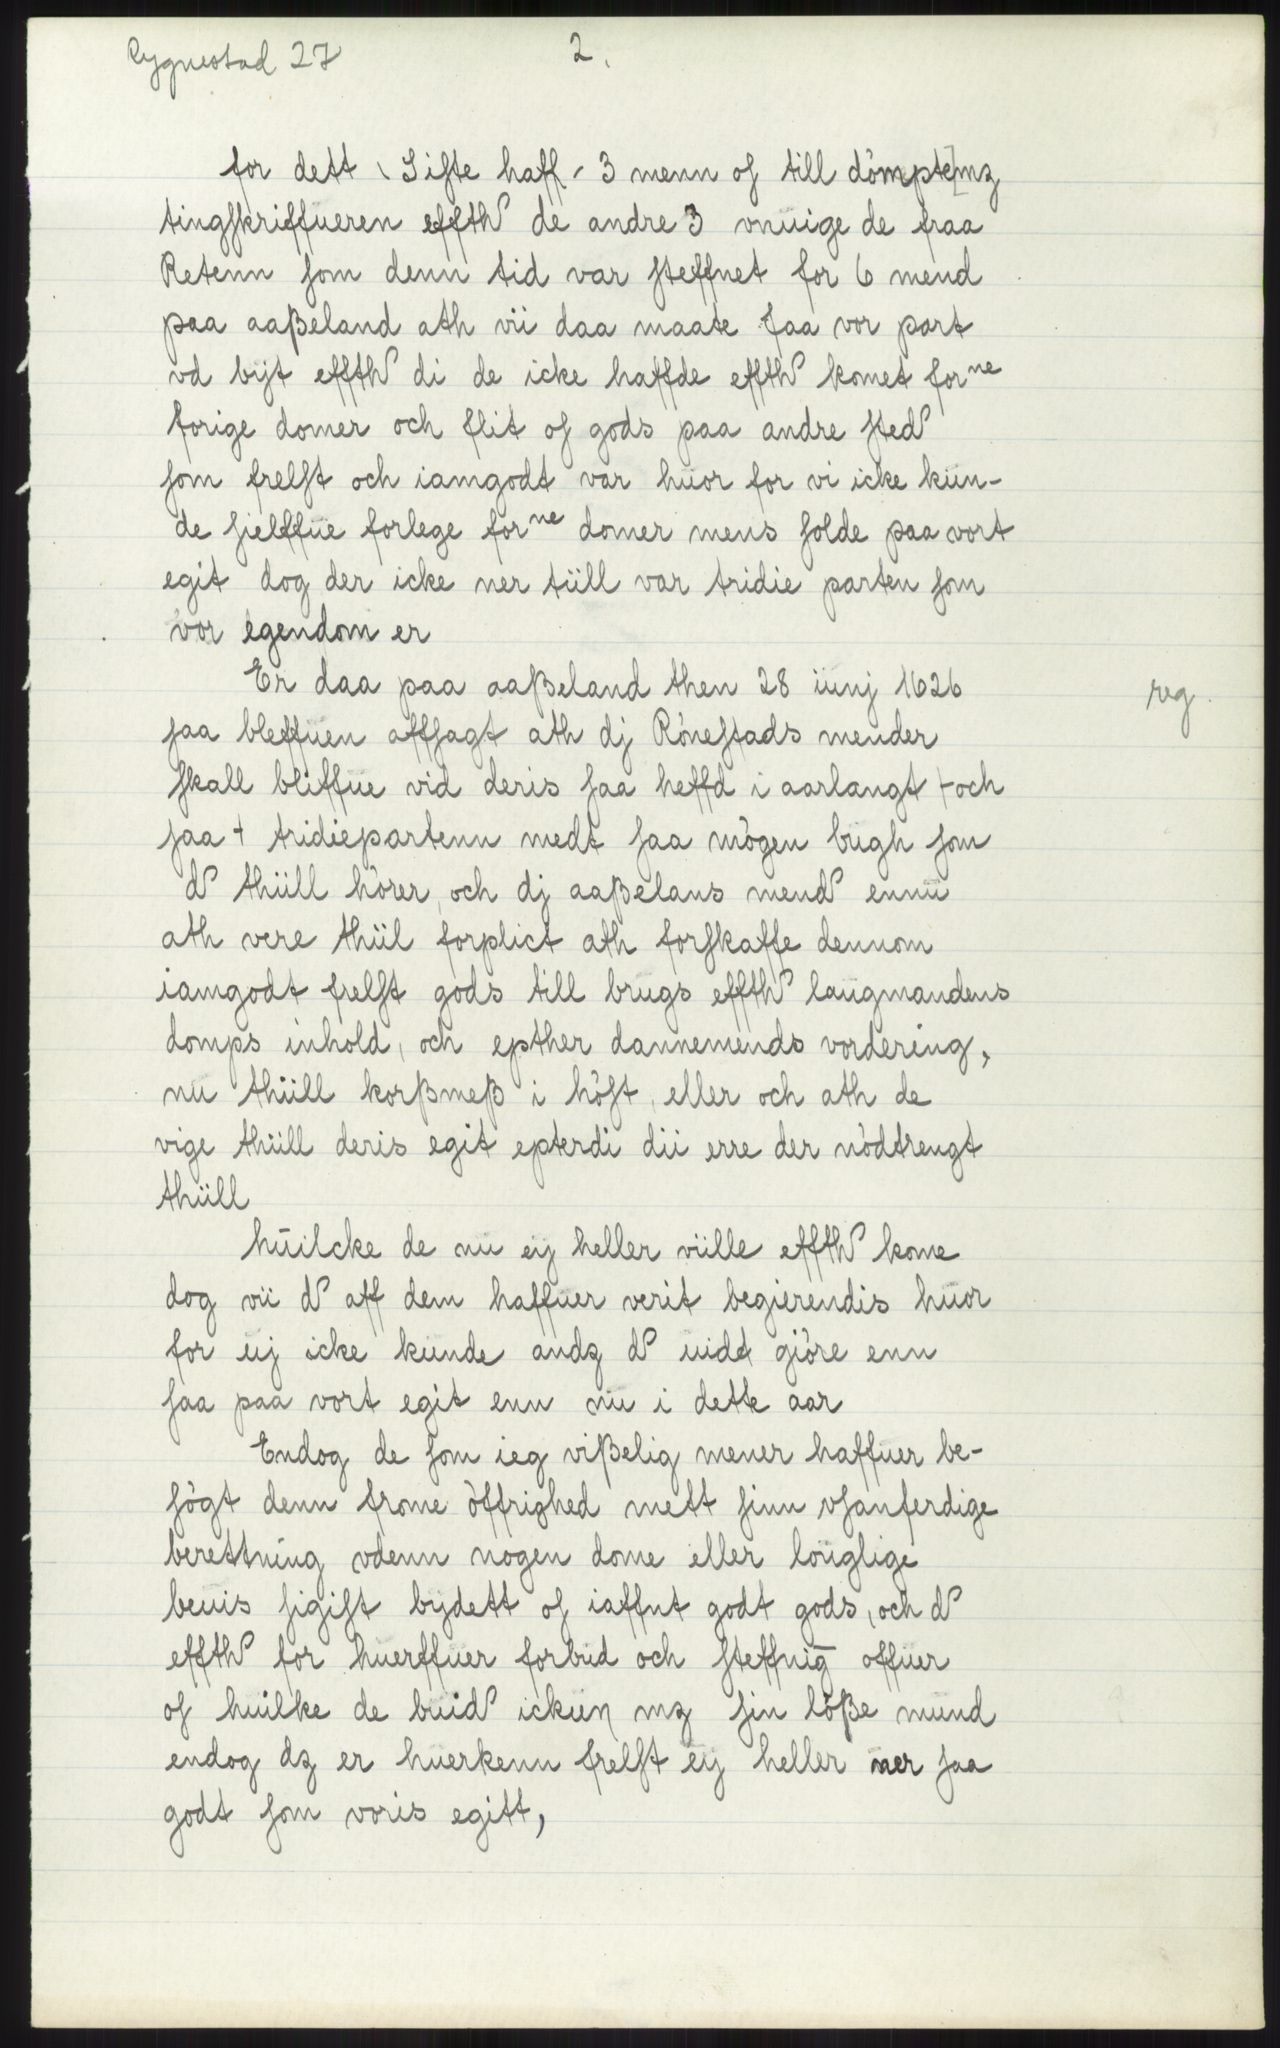 Rygnestad 27
2.
for dett \ Siste haff - 3 menn os till dömpte[mz
tingskriffueren effth de andre 3 vnuige de fraa
Retenn som denn tid var steffnet for 6 mend
paa aaßeland ath vii daa maate faa vor part
vd bÿt effth di de icke haffde effth komet forne
forige domer och flit os gods paa andre sted
som frelst och iamgodt var huor for vi icke kun-
de sielffue forlege forne domer mens solde paa vort
egit dog der icke ner tüll var tridie parten som
vor egendom er
Er daa paa aaßeland then 28 iunj 1626
reg.
saa bleffuen affsagt ath dj Rönestads mender
skall bliffue vid deris saa heffd i aarlangt + och
saa + tridiepartenn medt saa mögen bugh som
d thüll hörer, och dj aaßelans mend ennu
ath vere thül forplict ath forskaffe dennom
iamgodt frelst gods till brugs effth laugmandens
domps inhold, och epther dannemends vordering,
nu thüll korßmeß i höst, eller och ath de
vige thüll deris egit epterdi dii erre der nödtrengt
thüll
huilcke de nu eÿ heller ville effth kome
dog vii d aff dem haffuer verit begierendis huor
for uj icke kunde andz d uidt giöre enn
saa paa vort egit enn nu i dette aar
Endog de som ieg vißelig mener haffuer be-
sögt denn frome öffrighed mett sinn vsanferdige
berettning vdenn nogen dome eller louglige
beuis sigist bÿdett os iaffnt godt gods, och d
effth for huerffuer forbud och steffnig offuer
os huilke de buid ickun mz sin löße mund
endog dz er huerkenn frelst eÿ heller ner saa
godt som voris egitt,